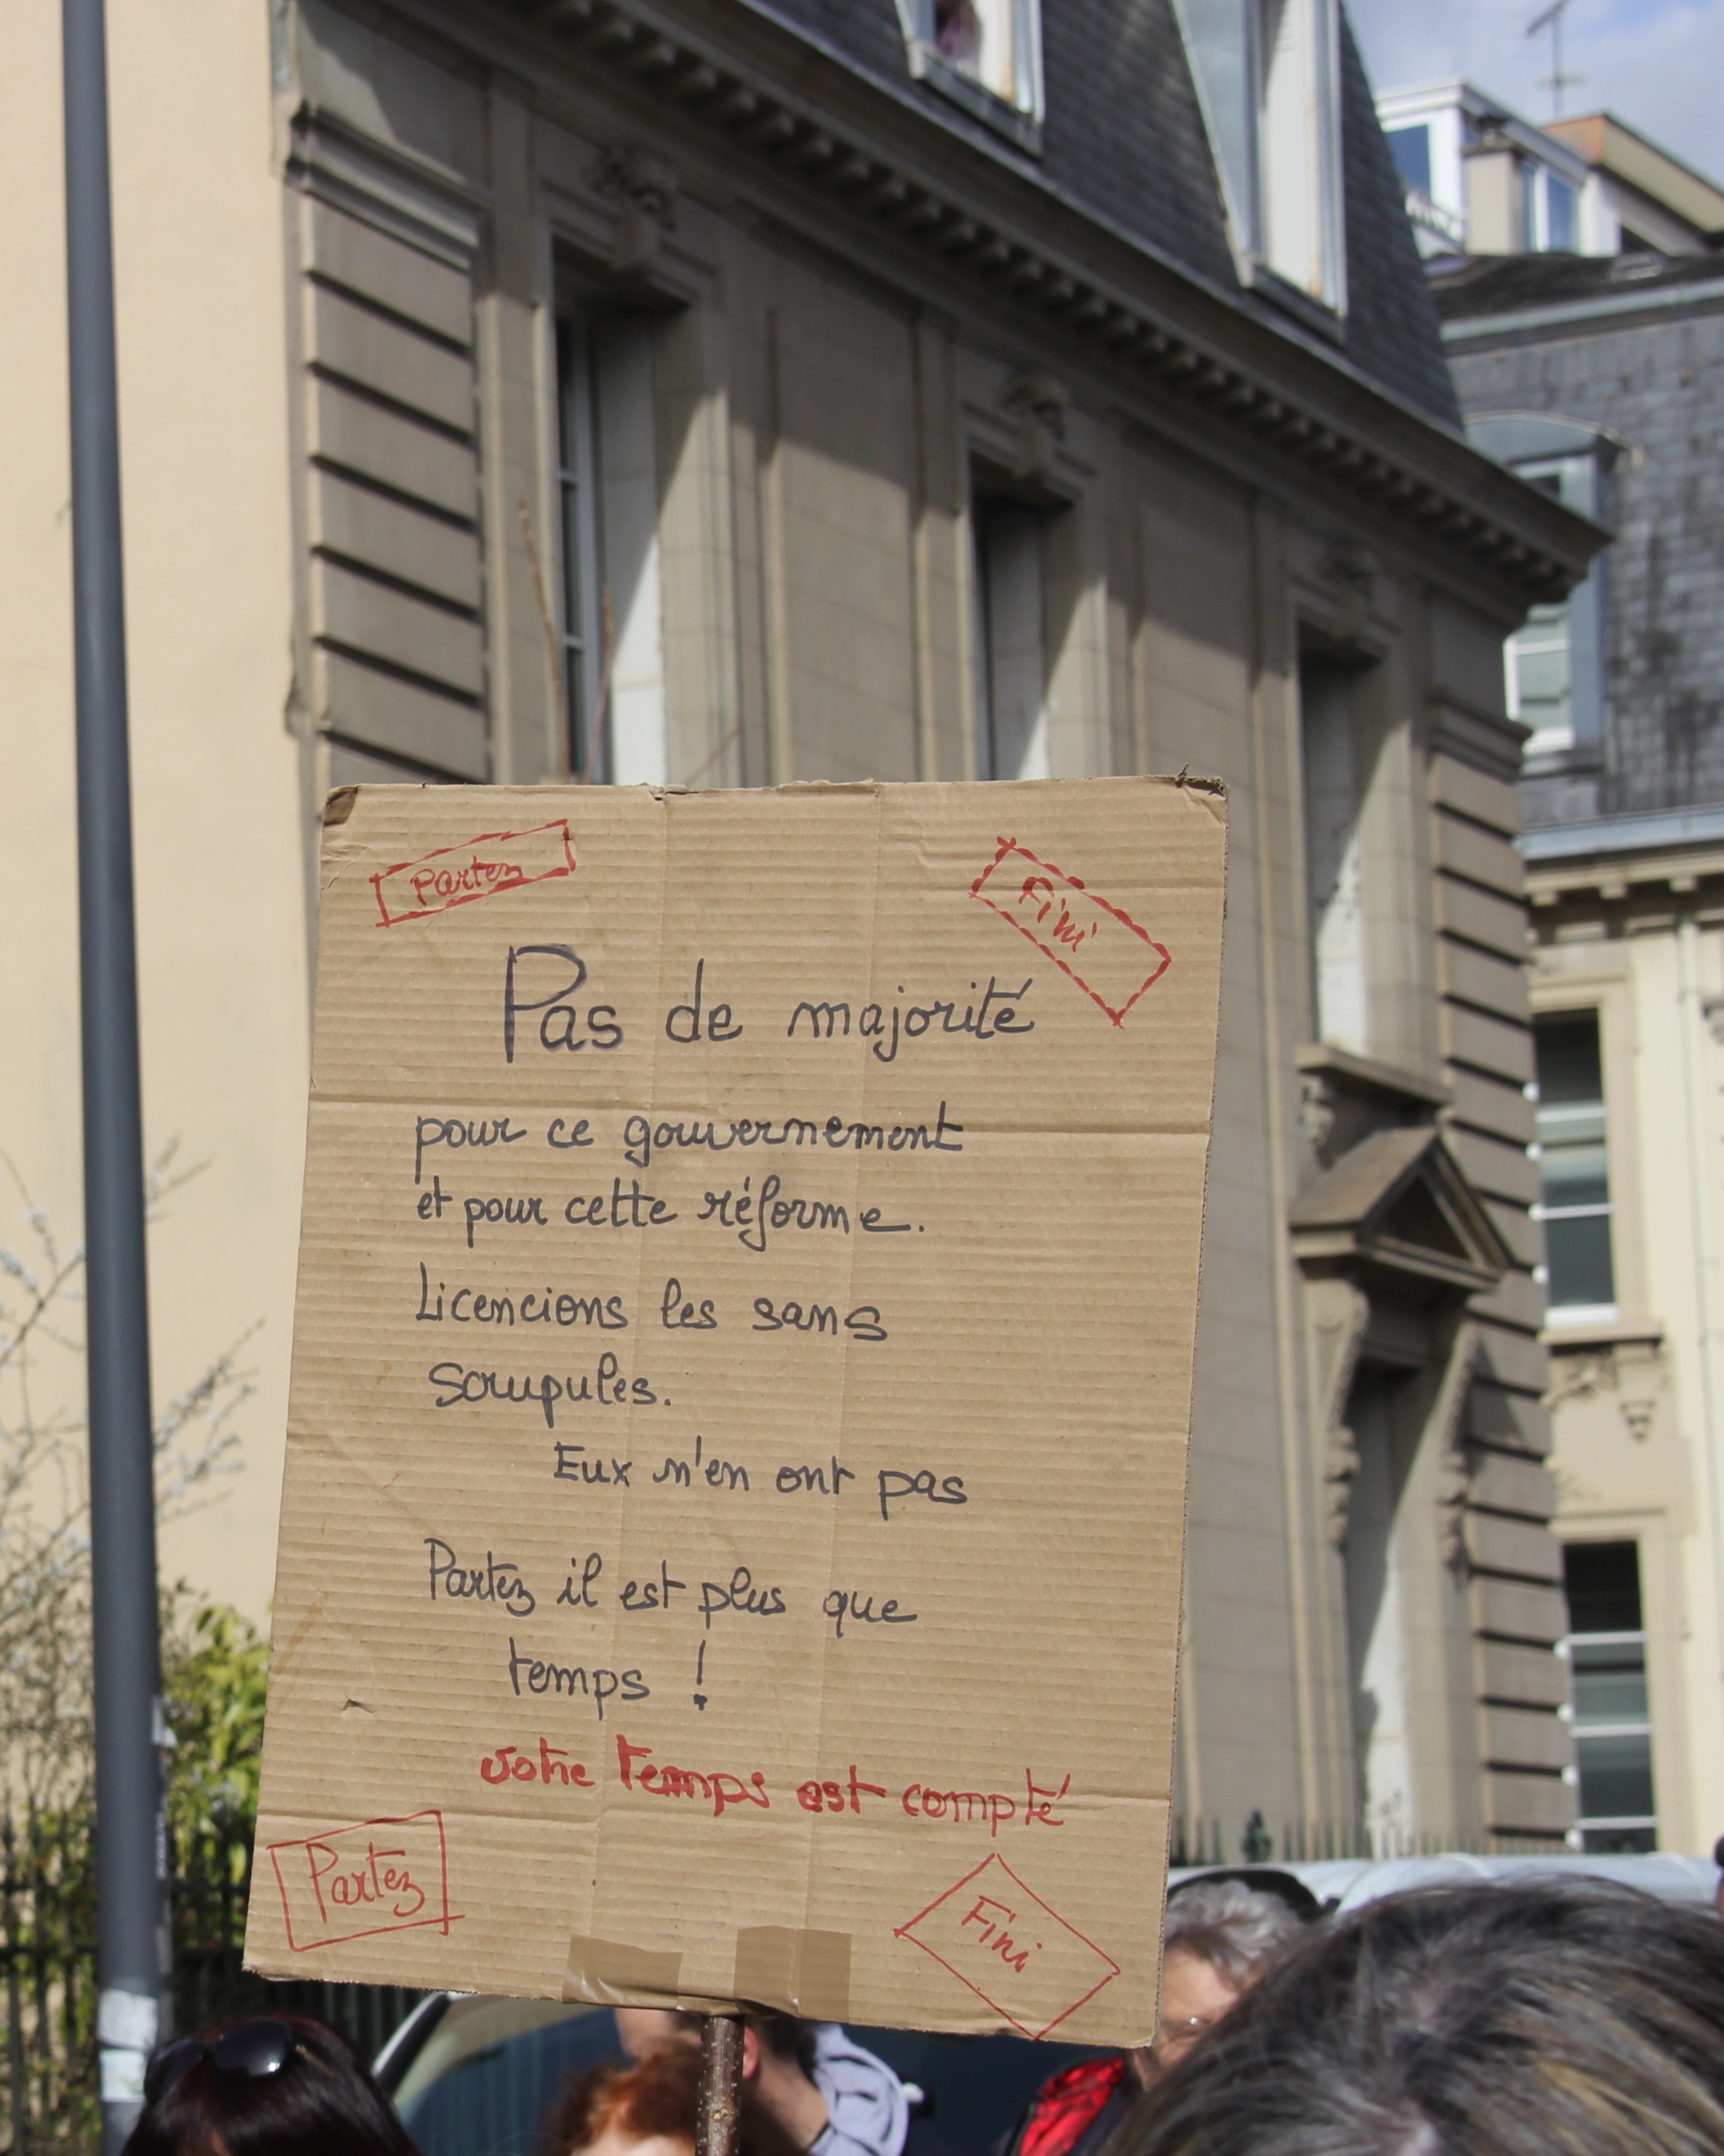 Partez
Fini
Pas de majorité
pour ce gouvernement
et pour cette réforme.
Licencions les sans
scrupules.
Eux n'en ont pas
Partez il est plus que
temps !
votre temps est compté
Partez
Fini